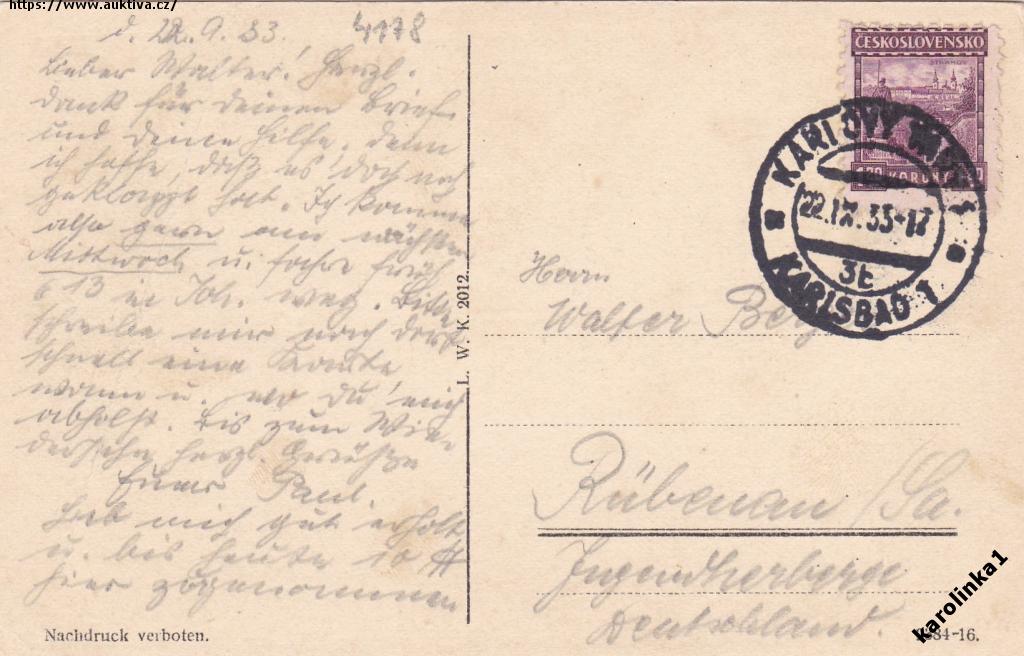 https://www.auktiva.cz/
d. 22.9.33.
4178
Lieber Walter! Herzl.
dank für deinen Brief
und deine Hilfe. Denn
ich hoffe daß es doch noch
geklappt hat. Ich komme
also gern am nächsten
Mittwoch u. fahre früh
6 13 in Joh. weg. Bitte
schreibe mir noch dort
schnell eine Karte
wann u. wo du mich
abholst. Bis zum Wie
dersehn herzl. Grüße
Euer Paul.
Hab mich gut erholt
u. bis heute 10 ℔
hier zugenommen
Nachdruck verboten.
L. W. K. 2012.
ČESKOSLOVENSKO
STRAHOV
KORUNY
KARLOVY VARY 1
22.IX.33-17
3b
KARLSBAD 1
Herrn
Walter
Rübenau/Sa.
Jugendherberge
Deutschland.
84-16.
karolinka1